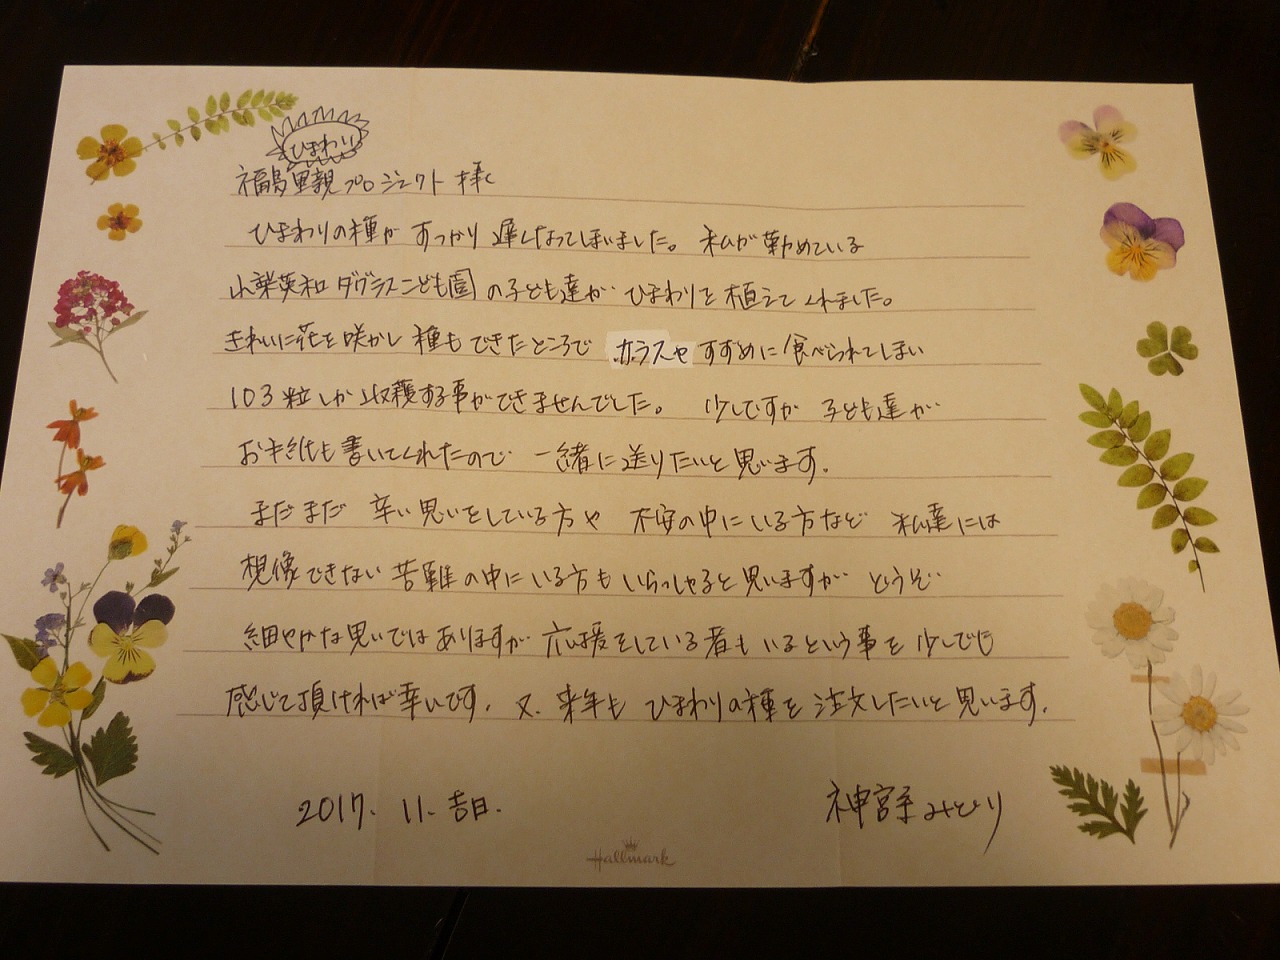 ひまわり
福島里親プロジェクト 様
ひまわりの種が すっかり 遅くなってしまいました。 私が勤めている
山梨英和 ダグラスこども園 の子ども達が ひまわりを 植えて くれました。
きれいに花を咲かし 種も できたところで カラスや すずめに 食べられてしまい
103粒しか 収穫する事ができませんでした。 少しですが 子ども達が
お手紙も 書いてくれたので 一緒に 送りたいと 思います。
まだまだ 辛い思いをしている方や 不安の中にいる方など 私達には
想像できない 苦難の中に いる方も いらっしゃると 思いますが どうぞ
細やかな思いでは ありますが 応援をしている者も いるという事を 少しでも
感じて頂ければ幸いです。 又、来年も ひまわりの種を 注文したいと 思います。
2017. 11. 吉日.
神宮寺みどり
Hallmark